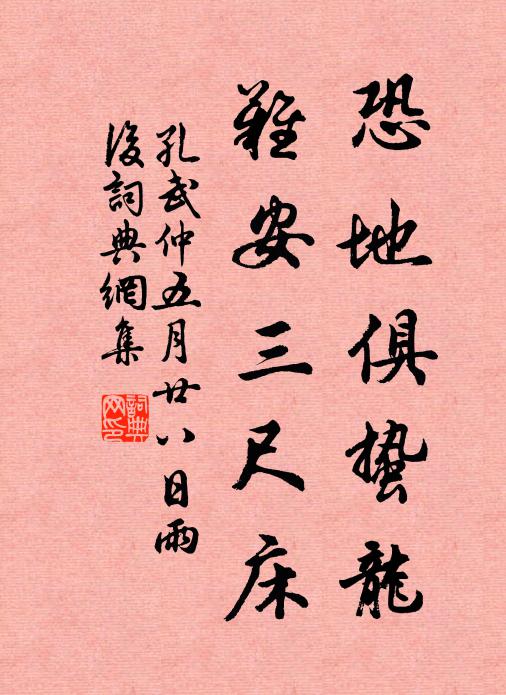 恐地俱蟄龍
難安三尺床
孔武仲五月廿八日雨
後詞典網集
詞典网印